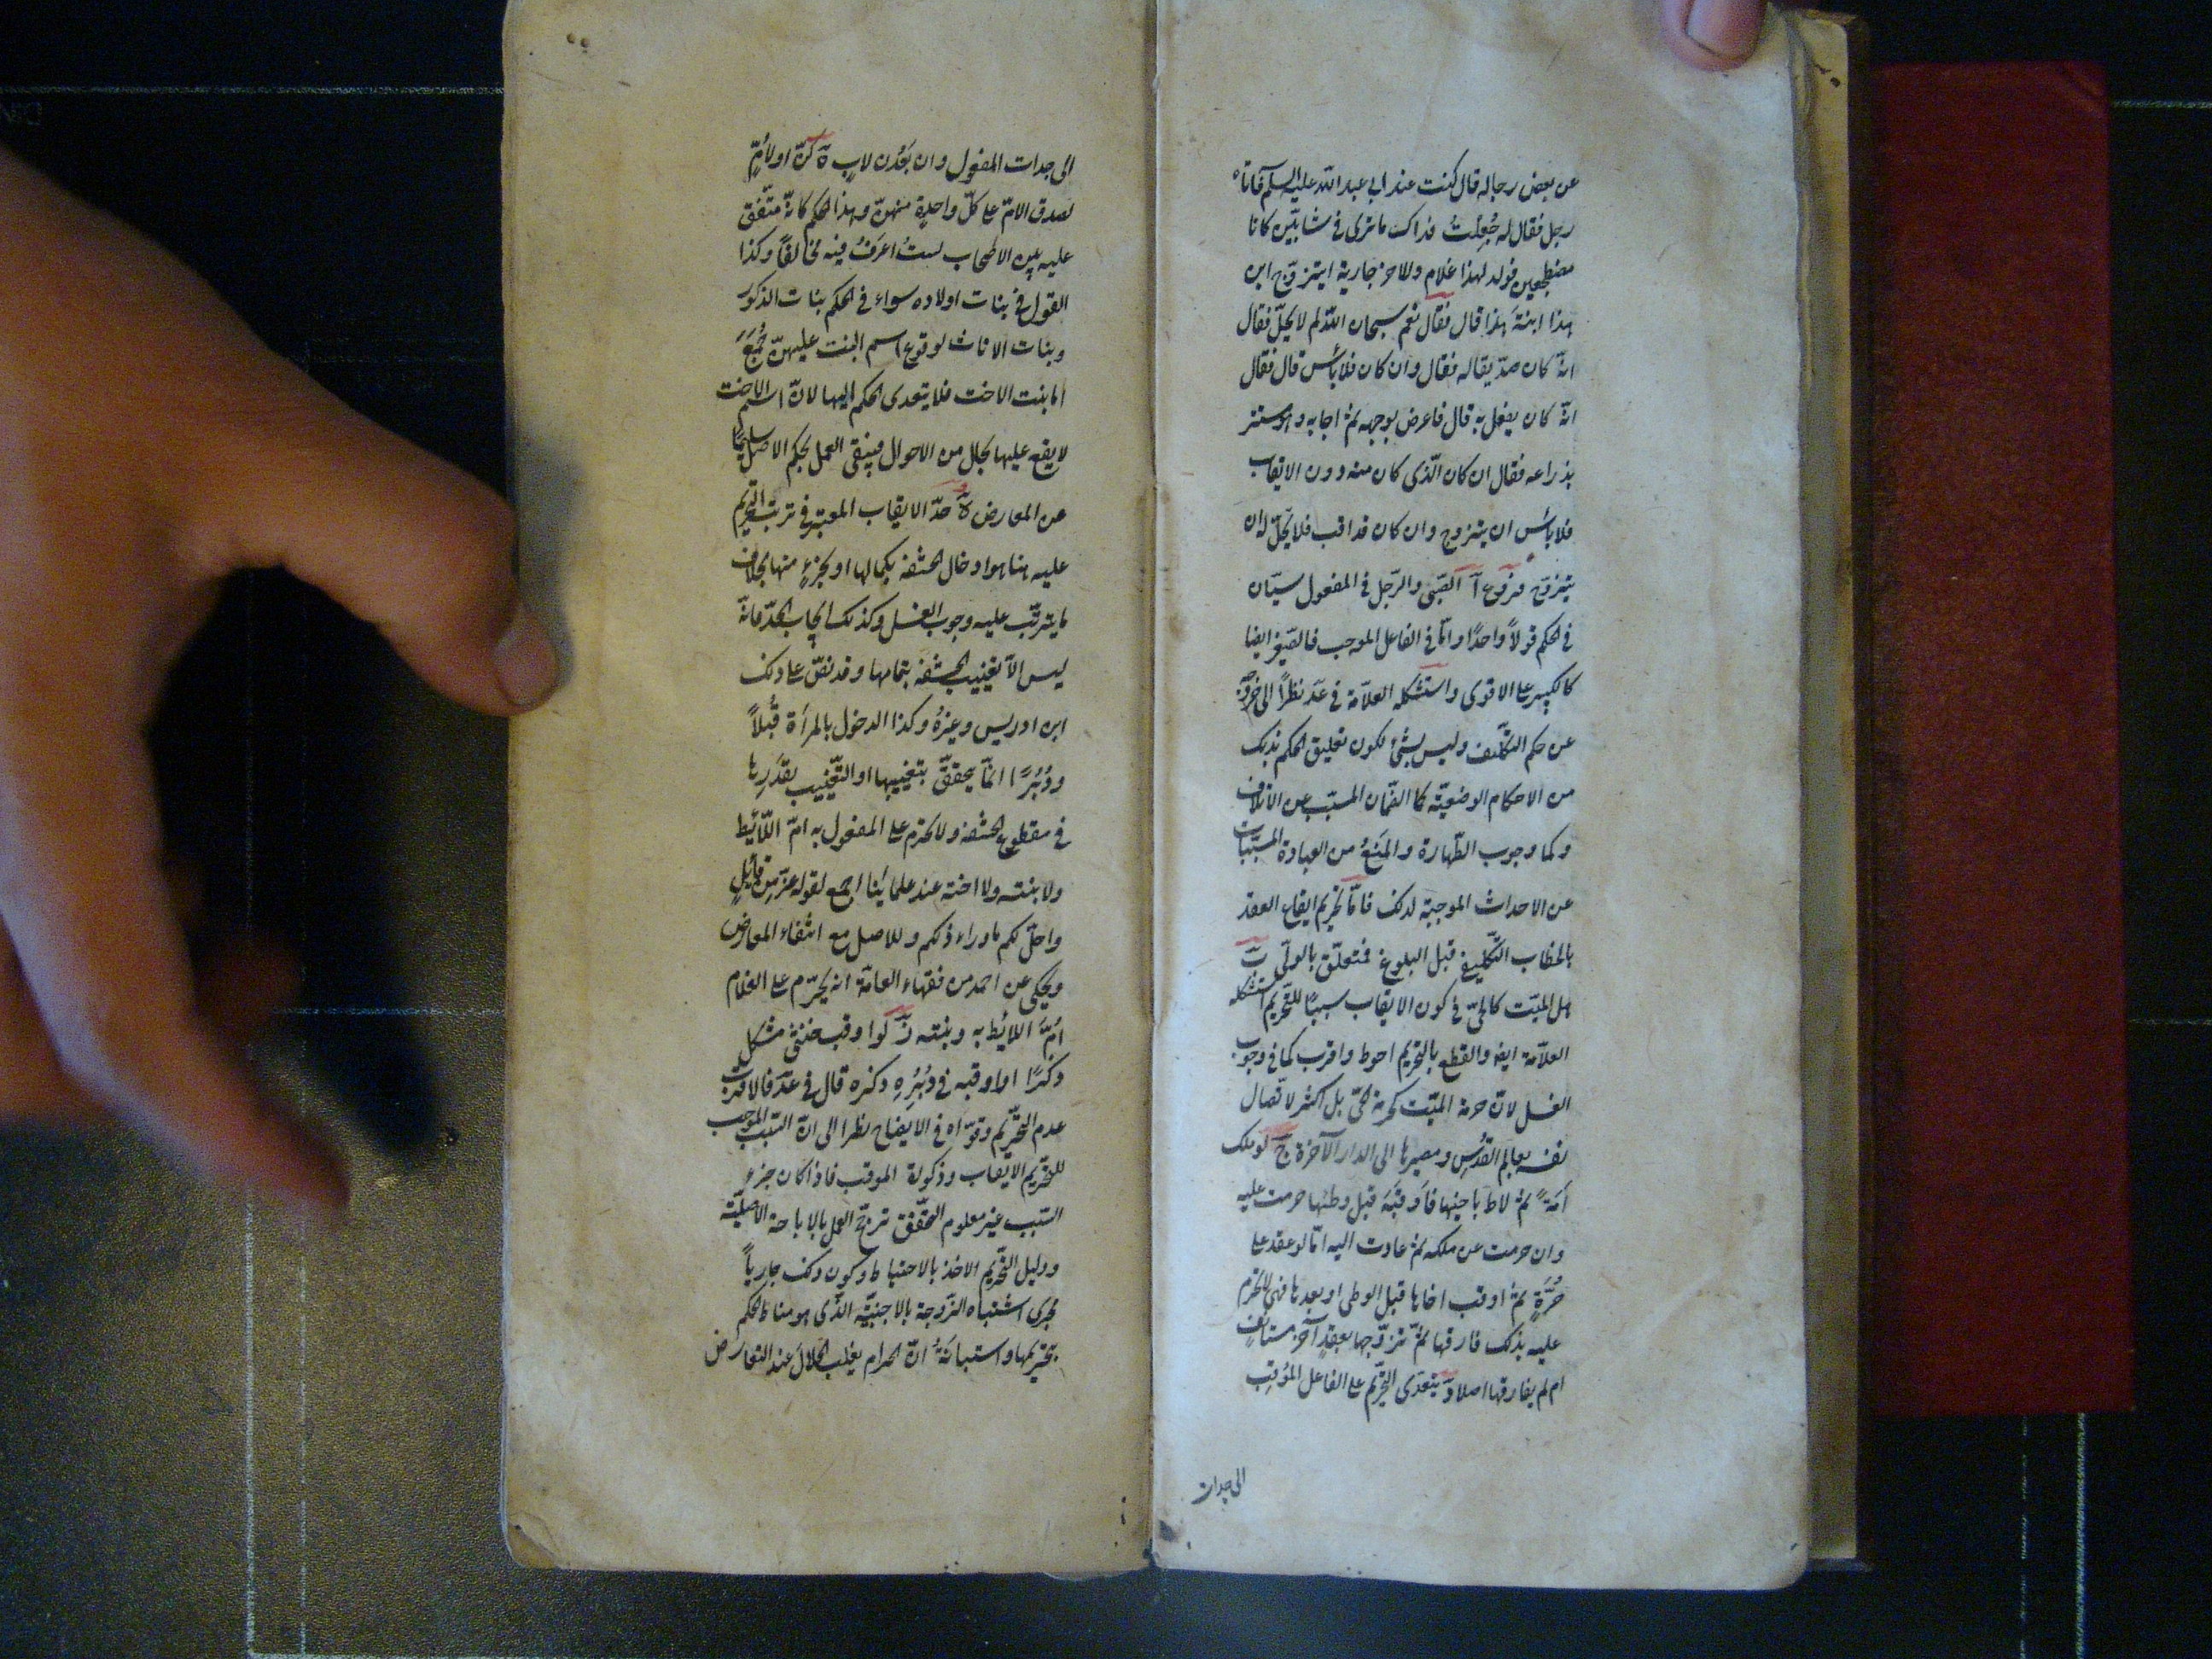 عن بعض رجاله قال كنت عند ابي عبد الله عليه السلم فاتاه
رجل فقال له جُعِلْتُ فداك ما ترى في شابّين كانا
مضطجعين فولد لهذا غلام وللاخر جارية ايتزوّج ابن
هذا ابنة هذا قال فقال نعم سبحان الله لم لا يحلّ فقال
انّه كان صديقا له فقال وان كان فلا بأس قال فقال
انّه كان يفعل به قال فاعرض بوجهه ثم اجابه وهو مستتر
بذراعه فقال ان كان الّذى كان منه دون الايقاب
فلا بأس ان يتزوج وان كان قد اوقب فلا يحلّ له ان
يتزوّج فروع آ الصّبى والرّجل في المفعول سيّان
في الحكم قولاً واحدًا وامّا في الفاعل الموجب فالصّبى ايضا
كالكبير على الاقوى واستشكله العلّامة في عد نظرًا الى خروجه
عن حكم التكليف وليس بشئ لكون تعليق الحكم بذلك
من الاحكام الوضعيّة كما الضّمان المسبّب عن الاتلاف
وكما وجوب الطّهارة والمَنعُ من العبادة المسبّبات
عن الاحداث الموجبة لذلك فامّا تحريم ايقاع العقد
بالخطاب التّكليفى قبل البلوغ فمتعلّق بالولّى بَ
هل الميّت كالحىّ في كون الايقاب سببًا للتّحريم استشكله
العلّامة ايضا والقطع بالتحريم احوط واقرب كما في وجوب
الغسل لانّ حرمة الميّت كحرمة الحىّ بل اكثر لاتّصال
نفسه بعالم القُدُسِ ومصيرها الى الدار الآخرة جَ لو ملك
اَمَةً ثم لاط باخيها فاَوقَبَهَ قبل وطئها حرمت عليه
وان خرجت عن ملكه ثم عادت اليه امّا لو عقد على
حُرَّةٍ ثم اوقب اخاها قبل الوطى او بعدها فهى لا تحرم
عليه بذلك فارقها ثمّ تزوّجها بعقدٍ آخر مستانف
ام لم يفارقها اصلا دَ يتعدّى التّحريم على الفاعل المُوقِب
الى جدات
الى جدات المفعول وان بَعُدْن لابٍ كنّ او لاُمّ
لصدق الامّ على كلّ واحدة منهنّ وهذا الحكم كانّه متّفق
عليه بين الاصحاب لستُ اعرفُ فيه مخالفًا وكذا
القول في بنات اولاده سواء في الحكم بنات الذكور
وبنات الاناث لوقوع اسم البنت عليهنّ جُمَعَ
اما بنت الاخت فلا يتعدى الحكم اليها لانّ اسم الاخت
لا يقع عليها بحال من الاحوال فيبقى العمل بحكم الاصل سليمًا
عن المعارض هَ حدّ الايقاب المعتبر في ترتب التحريم
عليه هنا هو ادخال الحشفة بكمالها او بجزءٍ منها بخلاف
ما يترتّب عليه وجوب الغسل وكذلك ايجاب الحدّ فانّه
ليس الّا تغييب الحشفة بتمامها وقد نصّ على ذلك
ابن ادريس وغيرُه وكذا الدخول بالمرأة قُبُلاً
ودُبُرًا انّما يتحقّق بتغييبها او التّغييب بقَدَرِها
في مقطوع الحشفة ولا تحرم على المفعول به امّ اللّائط
ولا بنته ولا اخته عند علمائنا اجمع لقوله عزّ مِن قائلٍ
واحلّ لكم ما وراء ذلكم وللاصل مع انتفاء المعارض
ويحكى عن احمد من فقهاء العامّة انه يحرّم على الغلام
اُمَّ اللائط به وبنته زَ لو اوقب خنثى مشكل
ذكرًا او اوقبه في دُبُرِهِ ذكره قال في عد فالاقرب
عدم التّحريم وقوّاه في الايضاح نظرا الى انّ السّبب الموجب
للتّحريم الايقاب وذكورة الموقب فاذا كان جزء
السّبب غير معلوم التحقّق ترجّح العمل بالاباحة الاصليّة
ودليل التّحريم الاخذ بالاحتياط وكون ذلك جاريًا
مجرى اشتباه الزوجة بالاجنبيّة الّذى هو مناط الحكم
بتحريمها واستبانَةُ انّ الحرام يغلب الحلالَ عند التعارض